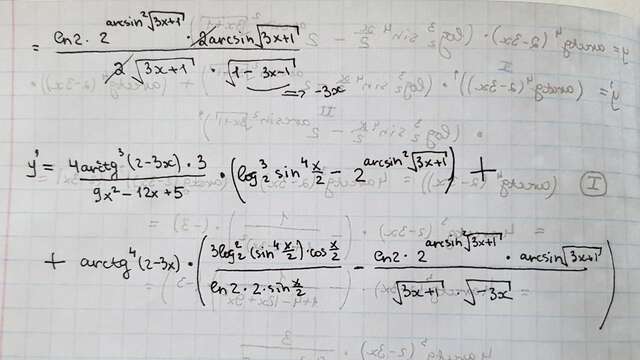 = ln2 · 2^(arcsin²√(3x+1)) · 2arcsin√(3x+1) / 2√(3x+1) · √(1 - 3x-1)
=> -3x
y' = 4arctg³(2-3x) · 3 / 9x² - 12x + 5 · (log₂³ sin⁴ x/2 - 2^(arcsin²√(3x+1))) +
+ arctg⁴(2-3x) · (3log₂²(sin⁴ x/2) · cos x/2 / ln2 · 2 · sin x/2 - ln2 · 2^(arcsin²√(3x+1)) · arcsin√(3x+1) / √(3x+1) · √(-3x))